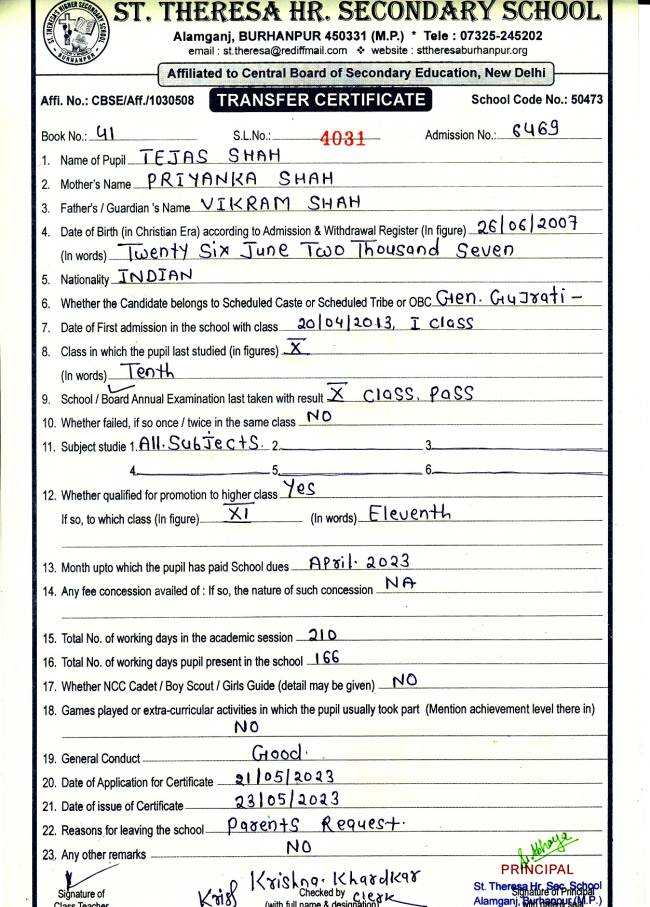 ST. THERESA HR. SECONDARY SCHOOL
Alamganj, BURHANPUR 450331 (M.P.) * Tele : 07325-245202
email : st.theresa@rediffmail.com ❖ website : sttheresaburhanpur.org
Affiliated to Central Board of Secondary Education, New Delhi
Affi. No.: CBSE/Aff./1030508 TRANSFER CERTIFICATE School Code No.: 50473
Book No.: 41 S.L.No.: 4031 Admission No.: 6469
1. Name of Pupil TEJAS SHAH
2. Mother's Name PRIYANKA SHAH
3. Father's / Guardian 's Name VIKRAM SHAH
4. Date of Birth (in Christian Era) according to Admission & Withdrawal Register (In figure) 26/06/2007
(In words) Twenty Six June Two Thousand Seven
5. Nationality INDIAN
6. Whether the Candidate belongs to Scheduled Caste or Scheduled Tribe or OBC Gen. Gujrati -
7. Date of First admission in the school with class 20/04/2013, I class
8. Class in which the pupil last studied (in figures) X
(In words) Tenth
9. School / Board Annual Examination last taken with result X class, Pass
10. Whether failed, if so once / twice in the same class NO
11. Subject studie 1. All. Subjects. 2. 3.
4. 5. 6.
12. Whether qualified for promotion to higher class Yes
If so, to which class (In figure) XI (In words) Eleventh
13. Month upto which the pupil has paid School dues April. 2023
14. Any fee concession availed of : If so, the nature of such concession NA
15. Total No. of working days in the academic session 210
16. Total No. of working days pupil present in the school 166
17. Whether NCC Cadet / Boy Scout / Girls Guide (detail may be given) NO
18. Games played or extra-curricular activities in which the pupil usually took part (Mention achievement level there in)
NO
19. General Conduct Good.
20. Date of Application for Certificate 21/05/2023
21. Date of issue of Certificate 23/05/2023
22. Reasons for leaving the school Parents Request.
23. Any other remarks NO
PRINCIPAL
Krishna. Khardkar
St. Theresa Hr. Sec. School
Signature of Checked by Clerk Signature of Principal
Class Teacher (with full name & designation) Alamganj, Burhanpur (M.P.)